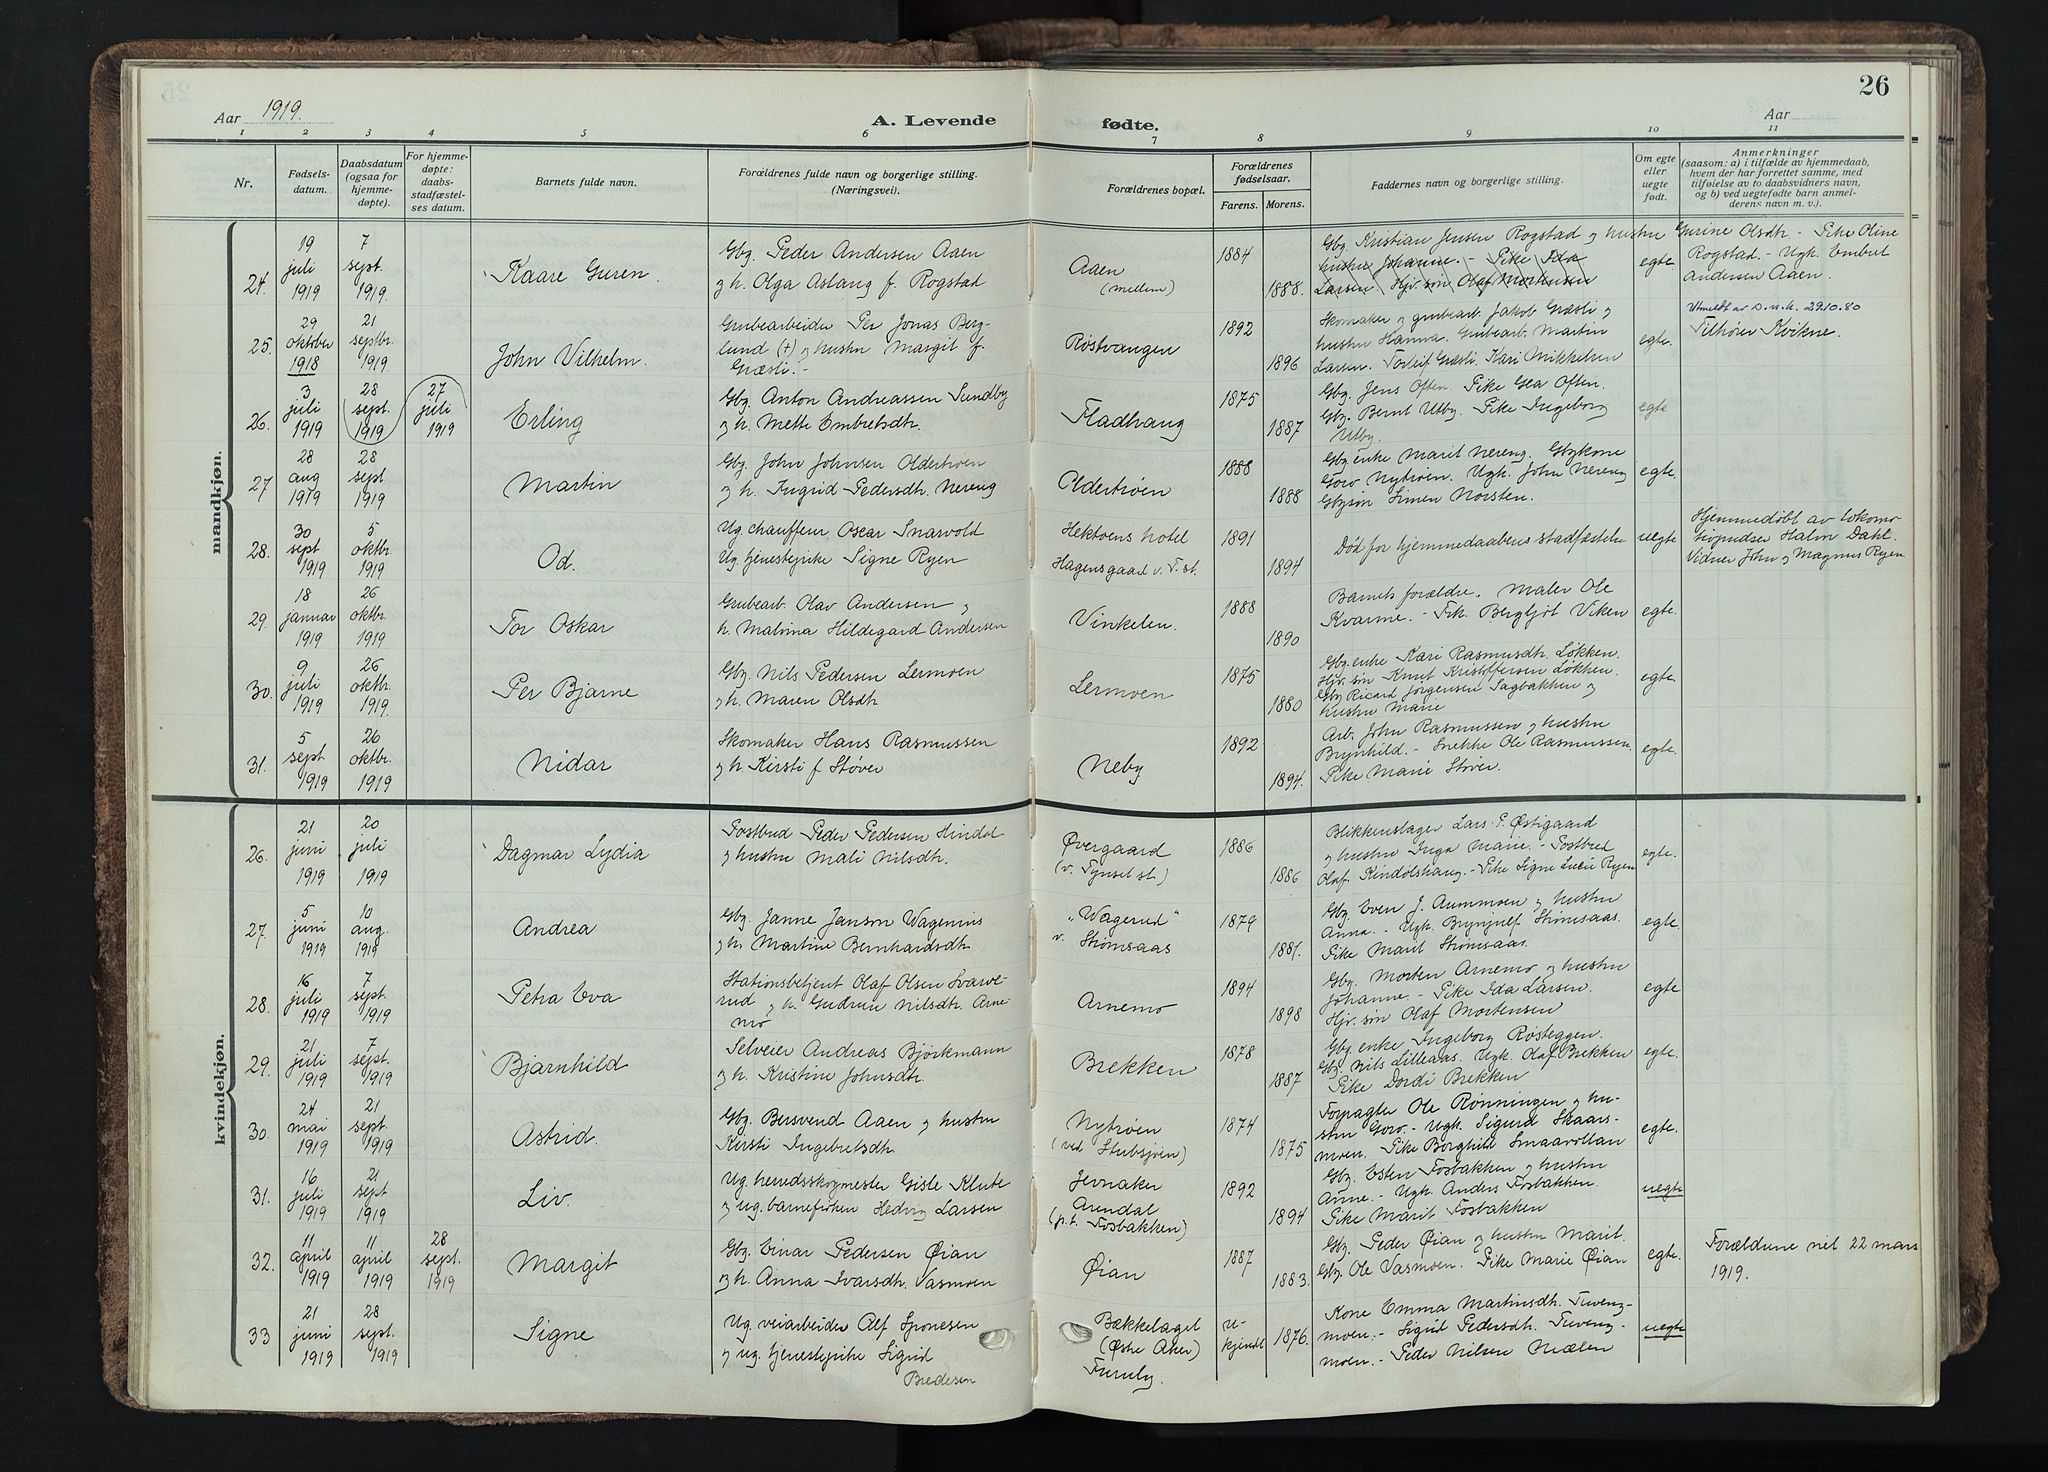 26
Aar 1919.
A. Levende fødte.
Aar
1 2 3 4 5 6 7 8 9 10 11
Nr.
Fødsels-
datum.
Daabsdatum
(ogsaa for
hjemme-
døpte).
For hjemme-
døpte:
daabs-
stadfæstel-
ses datum.
Barnets fulde navn.
Forældrenes fulde navn og borgerlige stilling.
(Næringsvei).
Forældrenes bopæl.
Forældrenes
fødselsaar.
Farens. Morens.
Faddernes navn og borgerlige stilling.
Om egte
eller
uegte
født.
Anmerkninger
(saasom: a) i tilfælde av hjemmedaab,
hvem der har forrettet samme, med
tilføielse av to daabsvidners navn,
og b) ved uegtefødte barn anmel-
derens navn m. v.).
mandkjøn.
24.
19
juli
1919
7
sept.
1919.
Kaare Guren.
Gbg. Peder Andersen Aaen
og h. Olga Aslaug f. Rogstad
Aaen
(mellem)
1884
1888.
Gbg. Kristian Jensen Rogstad og hustru Gurine Olsdtr - Pike Oline
hustru Johanne. - Pike Ida
Larsen. Hjv. søn Olaf Mortensen
egte
Rogstad. - Ugk. Embret
Andersen Aaen.
25.
29
oktober
1918
21
septbr.
1919.
John Vilhelm.
Grubearbeider Per Jonas Berg-
lund (+) og hustru Margit f.
Græsli. -
Røstvangen
1892
1896
Skomaker og grubearb. Jakob Græsli og
hustru Hanna. Grubearb. Martin
Larsen. Torleif Græsli. Kari Mikkelsen
egte.
Utmeldt av D.n.k. 29.10.80
Tilhører Kvikne.
26.
3
juli
1919
28
sept.
1919
27
juli
1919
Erling
Gbg. Anton Andreassen Sundby
og h. Mette Embretsdtr.
Fladhaug
1875
1887
Gbg. Jens Often. Pike Gea Often.
Gbg. Bernt Utby. Pike Ingeborg
Utby.
egte
27
28
aug
1919
28
sept
1919
Martin
Gbg. John Johnsen Oldertrøen
og h. Ingrid Pedersdtr. Nereng
Oldertrøen
1888
1888
Gbg. enke Marit Nereng. Gbgkone
Goro Nytrøen. Ugk. John Nereng
Gbgsøn Simen Norsten.
egte.
28.
30
sept
1919
5
oktbr
1919
Od.
Ug. chauffeur Oscar Snarvold
Ug. tjenestepike Signe Ryen
Hektoens hotel
Hagensgaard v. T. st.
1891
1894
Død før hjemmedaabens stadfæstelse
uegte
Hjemmedøbt av lokomo
tivpudser Halm Dahl.
Vidner John og Magnus Ryen
29.
18
januar
1919
26
oktbr.
1919
Tor Oskar
Grubearb. Olav Andersen og
h. Malvina Hildegard Andersen
Vinkelen.
1888
1890
Barnets forældre. Maler Ole
Kvarme. - Frk. Bergljot Viken
egte.
30.
9
juli
1919
26
oktbr.
1919.
Per Bjarne
Gbg. Nils Pedersen Lermoen
og h. Maren Olsdtr
Lermoen
1875
1880
Gbg. enke Kari Rasmusdtr. Løkken.
Hjv. søn Knut Kristoffersen Løkken.
Gbg Ricard Jørgensen Sagbakken og
hustru Marie
egte.
31.
5
sept
1919
26
oktbr.
1919
Nidar
Skomaker Hans Rasmussen
og h. Kirsti f Støver
Neby
1892
1894.
Arb. John Rasmussen og hustru
Brynhild. - Snekke Ole Rasmussen
Pike Marie Støver.
egte.
kvindekjøn.
26.
21
juni
1919
20
juli
1919
Dagmar Lydia
Postbud Peder Pedersen Hindal
og hustru Mali Nilsdtr.
Øvergaard
(v. Tynset st.)
1886
1886
Blikkenslager Lars P. Østigaard
og hustru Inga Marie. - Postbud
Olaf Kindølshaug. - Pike Signe Lucie Ryen
egte.
27.
5
juni
1919
10
aug.
1919
Andrea
Gbg. Janne Janson Wagenius
og h. Martine Bernhardsdtr
"Wagerud"
v. Strømsaas
1879
1881.
Gbg. Even J. Aummoen og hustru
Anna. - Ugk. Brynjulf Strømsaas.
Pike Marit Strømsaas.
egte.
28.
16
juli
1919
7
sept.
1919
Petra Eva
Stationsbetjent Olaf Olsen Svarve-
rud og h. Gudrun Nilsdtr. Arne-
mo
Arnemo
1894
1898
Gbg. Morten Arnemo og hustru
Johanne. - Pike Ida Larsen.
Hjv. søn Olaf Mortensen
egte
29.
21
juli
1919
7
sept.
1919
Bjarnhild
Selveier Andreas Bjørkmann
og h. Kristine Johnsdtr.
Brekken
1878
1887
Gbg. enke Ingeborg Røsteggen.
Gbg. Nils Lilleaas. Ugk. Olaf Brekken
Pike Dordi Brekken
egte.
30.
24
mai
1919
21
sept.
1919
Astrid.
Gbg. Bersvend Aaen og hustru
Kirsti Ingebretsdtr.
Nytrøen
(ved Stubsjøen)
1874
1875
Forpagter Ole Rønningen og hu-
stru Goro. - Ugk. Sigurd Skaars-
moen. Pike Borghild Smaavollan
egte.
31.
16
juli
1919
21
sept
1919
Liv.
Ug. herredsskogmester Gisle Klute
og ug. barnefrøken Hedvig Larsen
Jevnaker
Arendal
(p.t. Fosbakken)
1892
1894
Gbg. Esten Fosbakken og hustru
Anne. - Ugk. Anders Fosbakken.
Pike Marit Fosbakken
uegte
32.
11
april
1919
11
april
1919
28
sept.
1919
Margit
Gbg. Einar Pedersen Øian
og h. Anna Ivarsdtr. Vasmoen
Øian
1887
1883.
Gbg. Peder Øian og hustru Marit.
Gbg. Ole Vasmoen. Pike Marie Øian
egte.
Forældrene viet 22 mars
1919.
33
21
juni
1919
28
sept.
1919
Signe
Ug. veiarbeider Alf Sponesen
og ug. tjenestepike Sigrid
Bredesen
Bækkelaget
(Østre Aker)
Furuly.
u-
kjendt
1876.
Kone Emma Martinsdtr. Tuveng-
moen. - Sigrid Pedersdtr. Tuveng-
moen. - Peder Nilsen Mælen
uegte